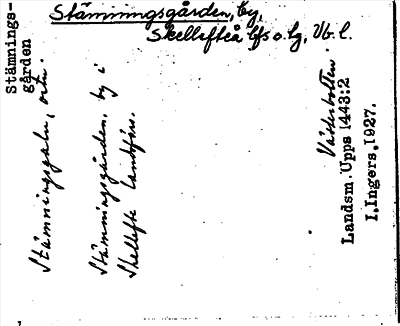 Stämningsgården, by,
Skellefteå lfs o. hg, Vb. l.
Stämnings-
gården
Stämningsgaln, ortn.
Stämningsgården, by i
Skellefte landsförs.
Västerbotten.
Landsm. Upps 1443:2
I. Ingers. 1927.